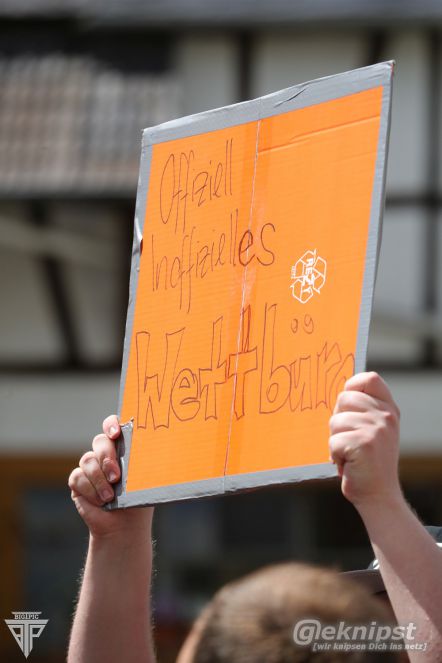 Offiziell
Inoffizielles
Wettbüro
BIG2PIC
@eknipst
[wir knipsen Dich ins netz]